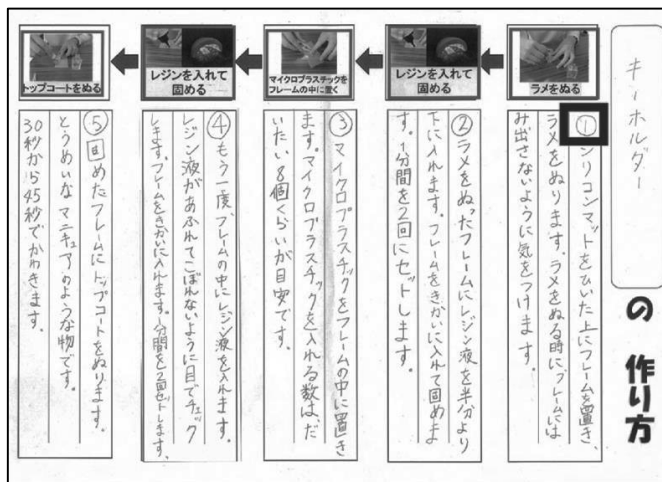 キーホルダー
の作り方
ラメをぬる
①シリコンマットをひいた上にフレームを置き、
ラメをぬります。ラメをぬる時にフレームには
み出さないように気をつけます。
レジンを入れて
固める
②ラメをぬったフレームにレジン液を半分より
下に入れます。フレームをきかいに入れて固めま
す。1分間を2回にセットします。
マイクロプラスチックを
フレームの中に置く
③マイクロプラスチックをフレームの中に置き
ます。マイクロプラスチックを入れる数は、だ
いたい8個くらいが目安です。
レジンを入れて
固める
④もう一度、フレームの中にレジン液を入れます。
レジン液があふれてこぼれないように目でチェック
します。フレームをきかいに入れます。1分間を2回セットします。
トップコートをぬる
⑤固めたフレームにトップコートをぬります。
とうめいなマニキュアのような物です。
30秒から45秒でかわきます。